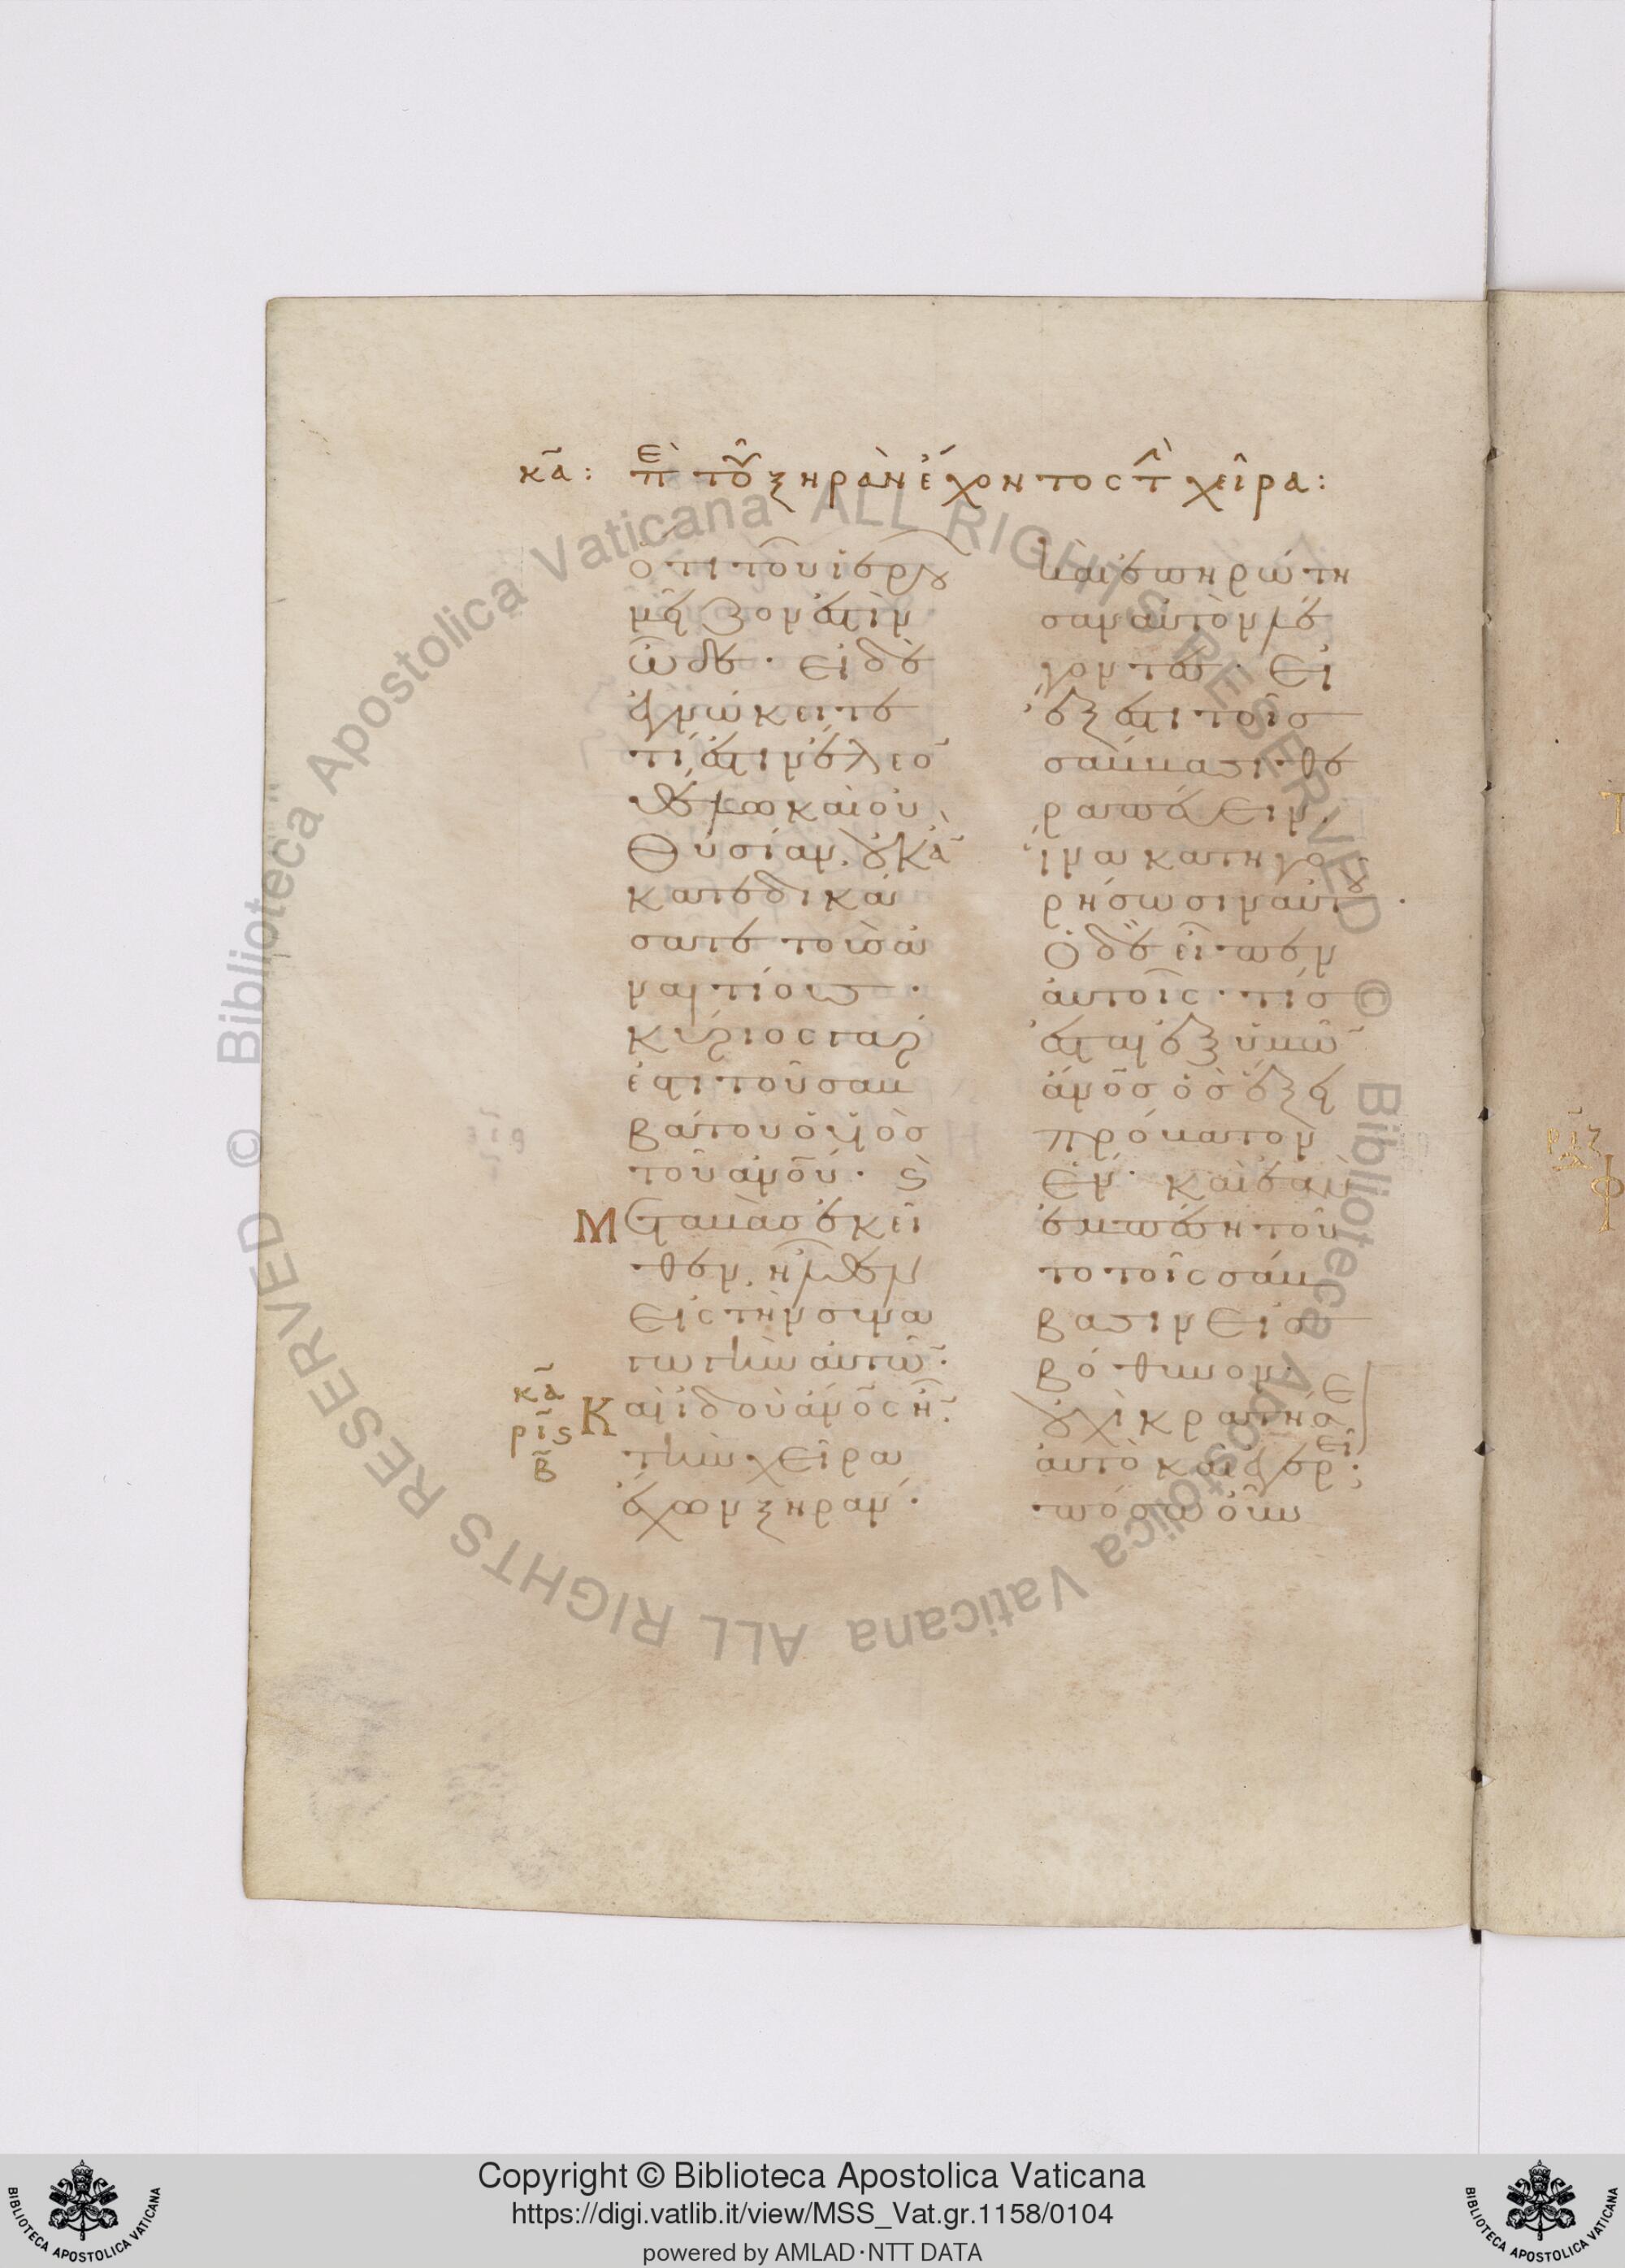 κα: ἐπὶ τοῦ ξηρὰν ἔχοντος τὴν χεῖρα:
ὅτι τοῦ ἱεροῦ
μεῖζον ἐστὶν
ὧδε. εἰ δὲ
ἐγνώκειτε
τί ἐστιν ἔλεον
θέλω καὶ οὐ
θυσίαν, οὐκ ἂν
κατεδικά
σατε τοὺς ἀ
ναιτίους.
κύριος γάρ
ἐστι τοῦ σαβ
βάτου ὁ υἱὸς
τοῦ ἀνοῦ. ϛ
Μεταβὰς ἐκεῖ
θεν, ἦλθεν
εἰς τὴν συνα
γωγὴν αὐτῶν.
κα
ριϛ
β
Καὶ ἰδοὺ ἀνος ἦν
τὴν χεῖρα
ἔχων ξηράν.
καὶ ἐπηρώτη
σαν αὐτὸν λέ
γοντες. εἰ
ἔξεστι τοῖς
σάββασι θε
ραπεύειν,
ἵνα κατηγο
ρήσωσιν αὐτοῦ.
Ὁ δὲ εἶπεν
αὐτοῖς. τίς
ἔσται ἐξ ὑμῶν
ἄνος ὃς ἕξει
πρόβατον
ἕν. καὶ ἐὰν
ἐμπέσῃ τοῦ
το τοῖς σάβ
βασιν εἰς
βόθυνον.
οὐχὶ κρατήσει
αὐτὸ καὶ ἐγερεῖ;
πόσω οὖν
© Biblioteca Apostolica Vaticana ALL RIGHTS RESERVED
© Biblioteca Apostolica Vaticana ALL RIGHTS RESERVED
Copyright © Biblioteca Apostolica Vaticana
https://digi.vatlib.it/view/MSS_Vat.gr.1158/0104
powered by AMLAD·NTT DATA
BIBLIOTECA APOSTOLICA VATICANA
BIBLIOTECA APOSTOLICA VATICANA